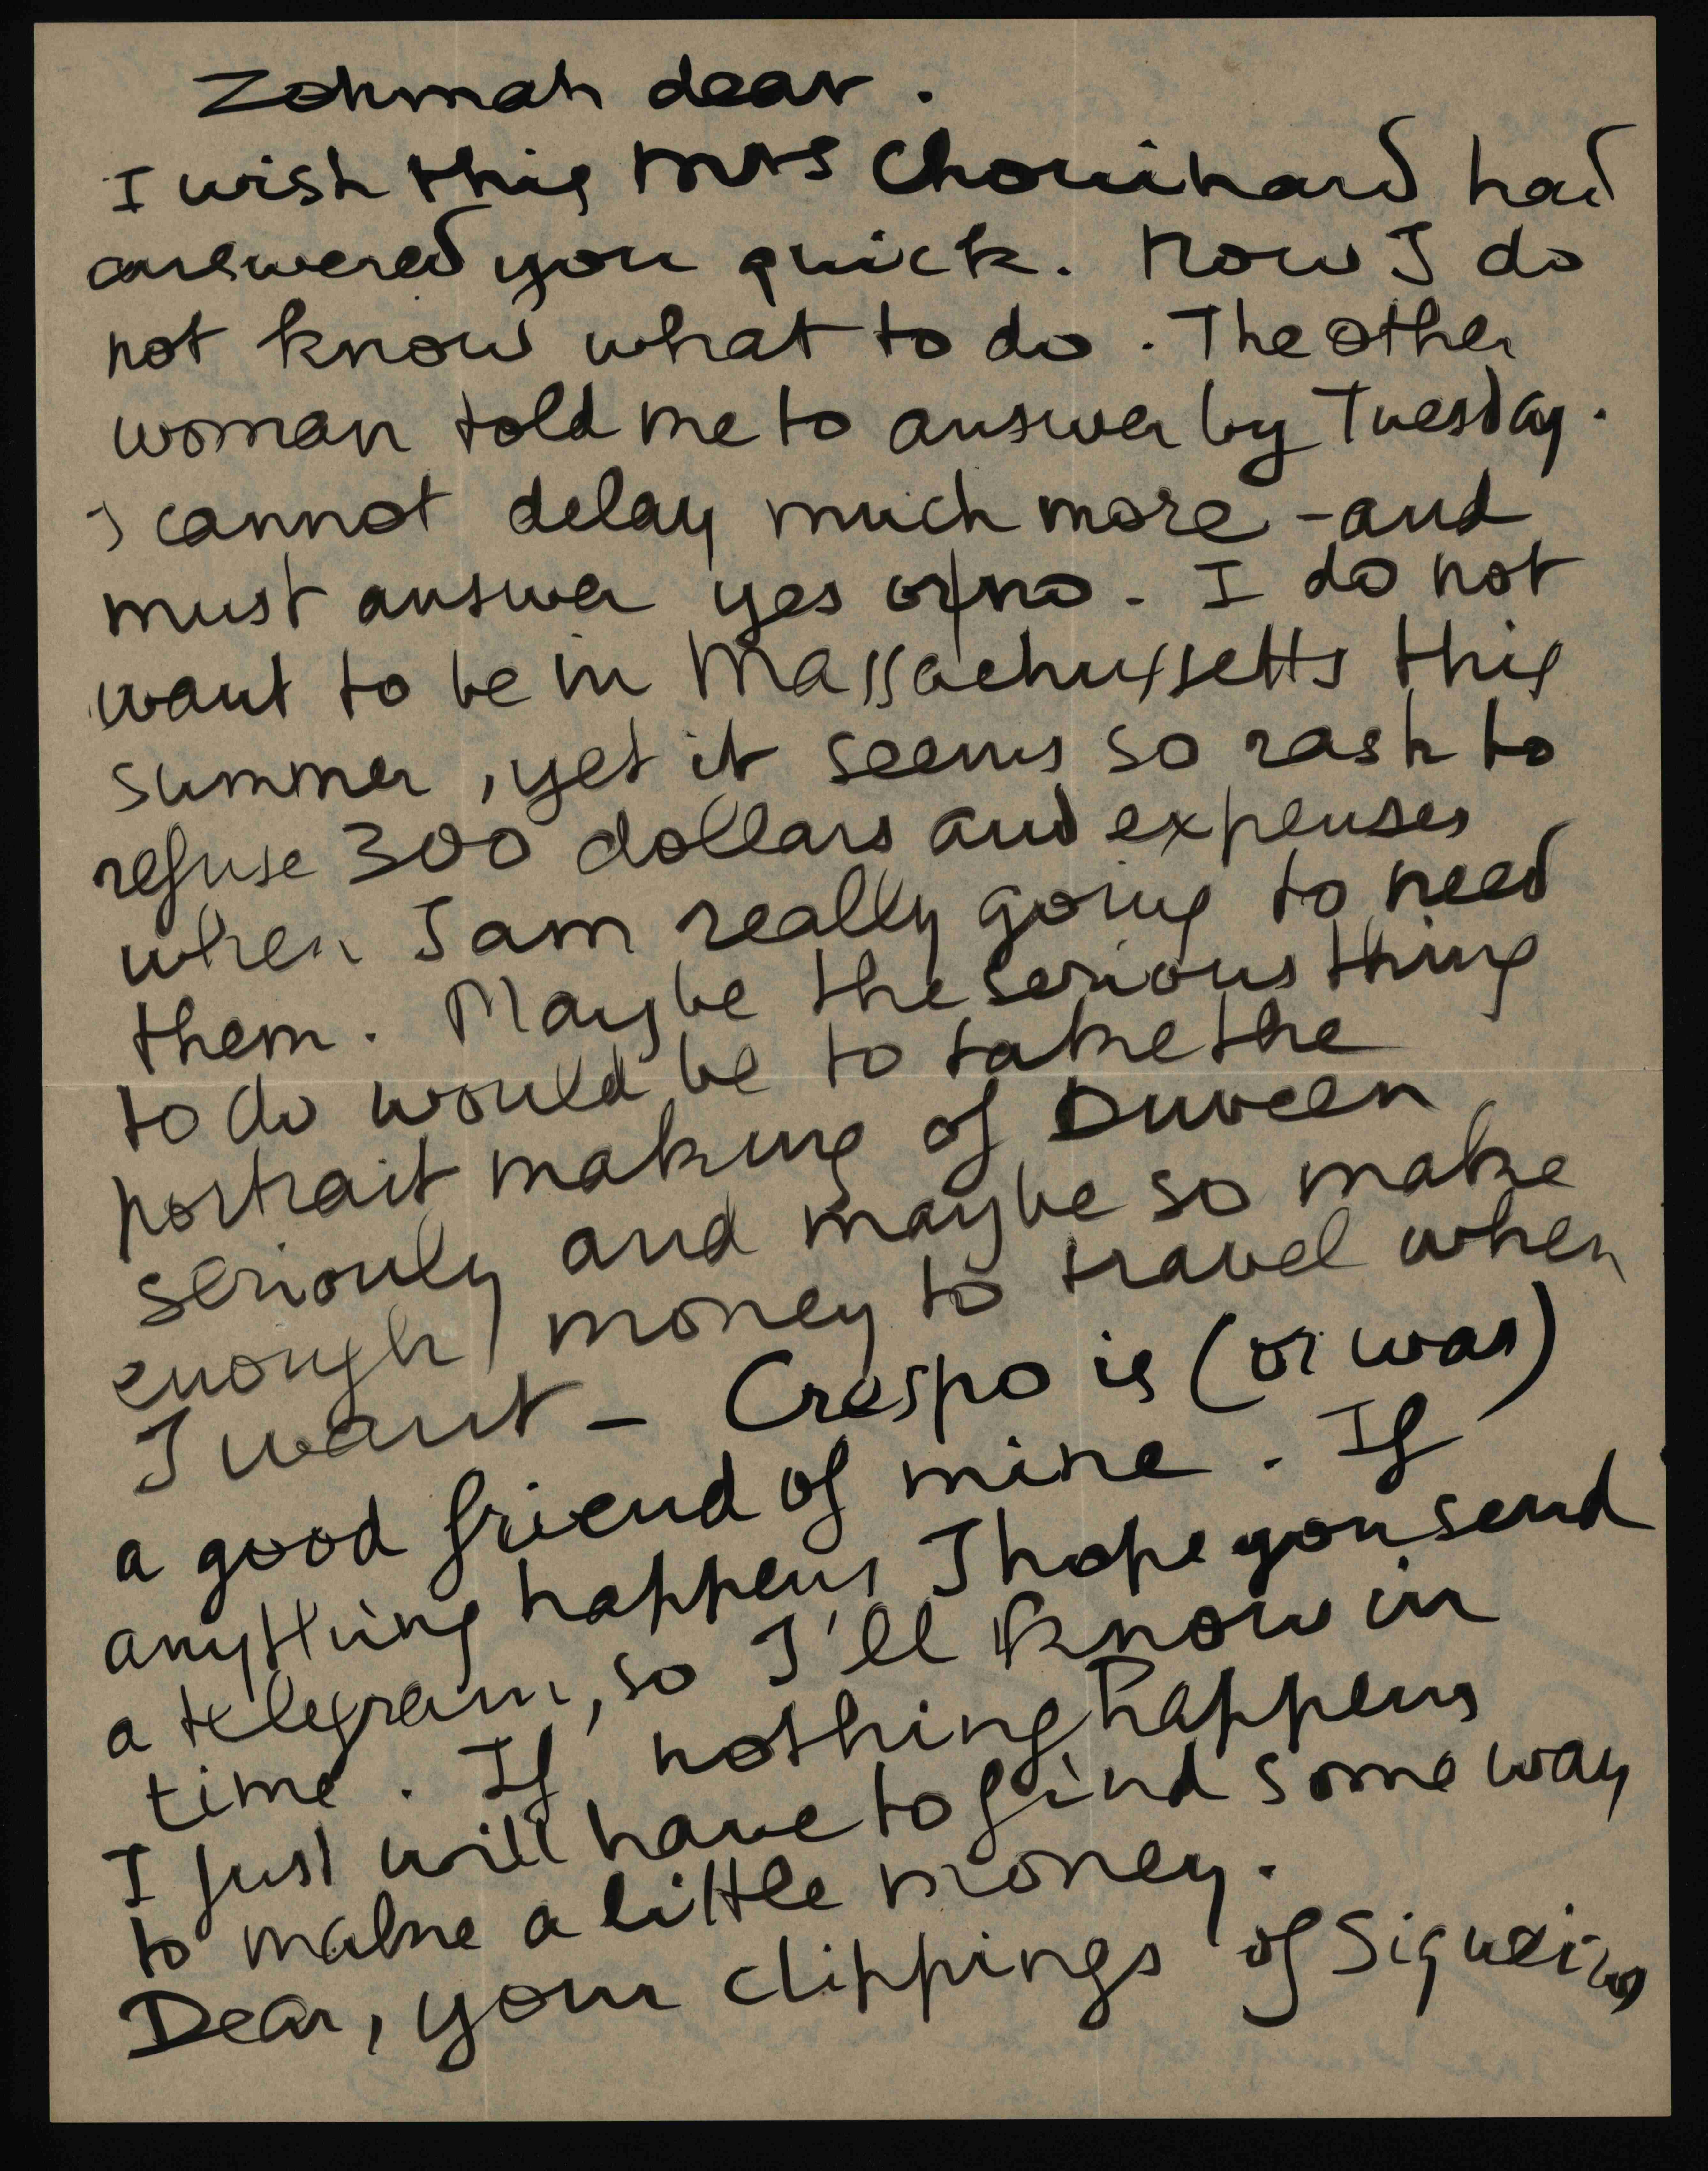 Zohmah dear.
I wish this Mrs Chouinard had
answered you quick. Now I do
not know what to do. The other
woman told me to answer by Tuesday.
I cannot delay much more - and
must answer yes or no. I do not
want to be in Massachussetts this
summer, yet it seems so rash to
refuse 300 dollars and expenses
when I am really going to need
them. Maybe the serious thing
to do would be to take the
portrait making of Duveen
seriouly and maybe so make
enough money to travel when
I want - Crespo is (or was)
a good friend of mine. If
anything happens I hope you send
a telegram, so I'll know in
time. If nothing happens
I just will have to find some way
to make a little money.
Dear, your clippings of Siqueiros